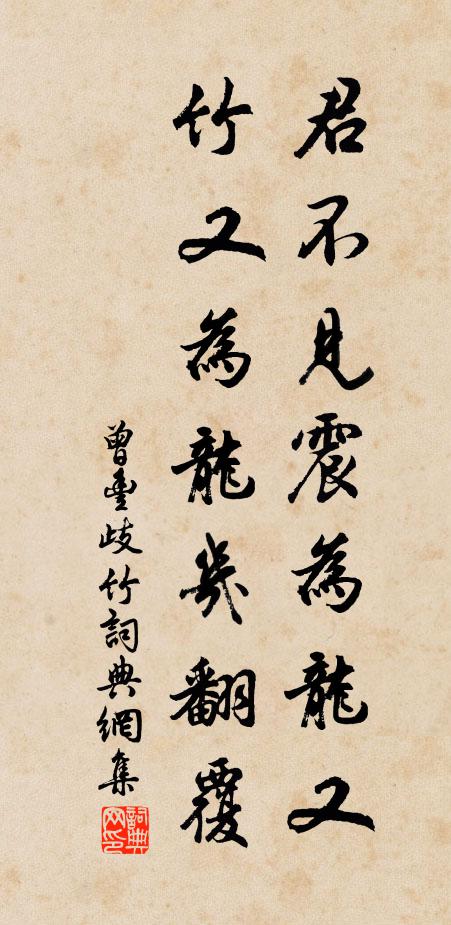 君不見震為龍又
竹又為龍幾翻覆
曾豐歧竹詞典網集
詞典網印